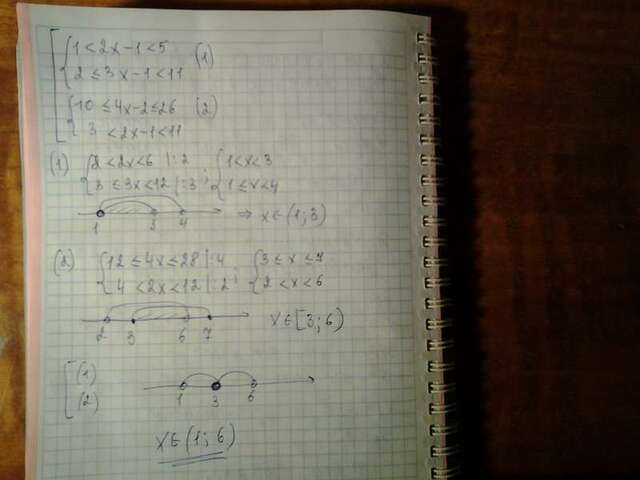 1 < 2x - 1 < 5
2 ≤ 3x - 1 < 11
(1)
10 ≤ 4x - 2 ≤ 26
3 < 2x - 1 < 11
(2)
(1) { 2 < 2x < 6 | : 2 ; { 1 < x < 3
{ 3 ≤ 3x < 12 | : 3 ; { 1 ≤ x < 4
1 3 4 ⇒ x ∈ (1; 3)
(2) { 12 ≤ 4x ≤ 28 | : 4 ; { 3 ≤ x ≤ 7
{ 4 < 2x < 12 | : 2 ; { 2 < x < 6
2 3 6 7 x ∈ [3; 6)
[ (1)
[ (2)
1 3 6
x ∈ (1; 6)